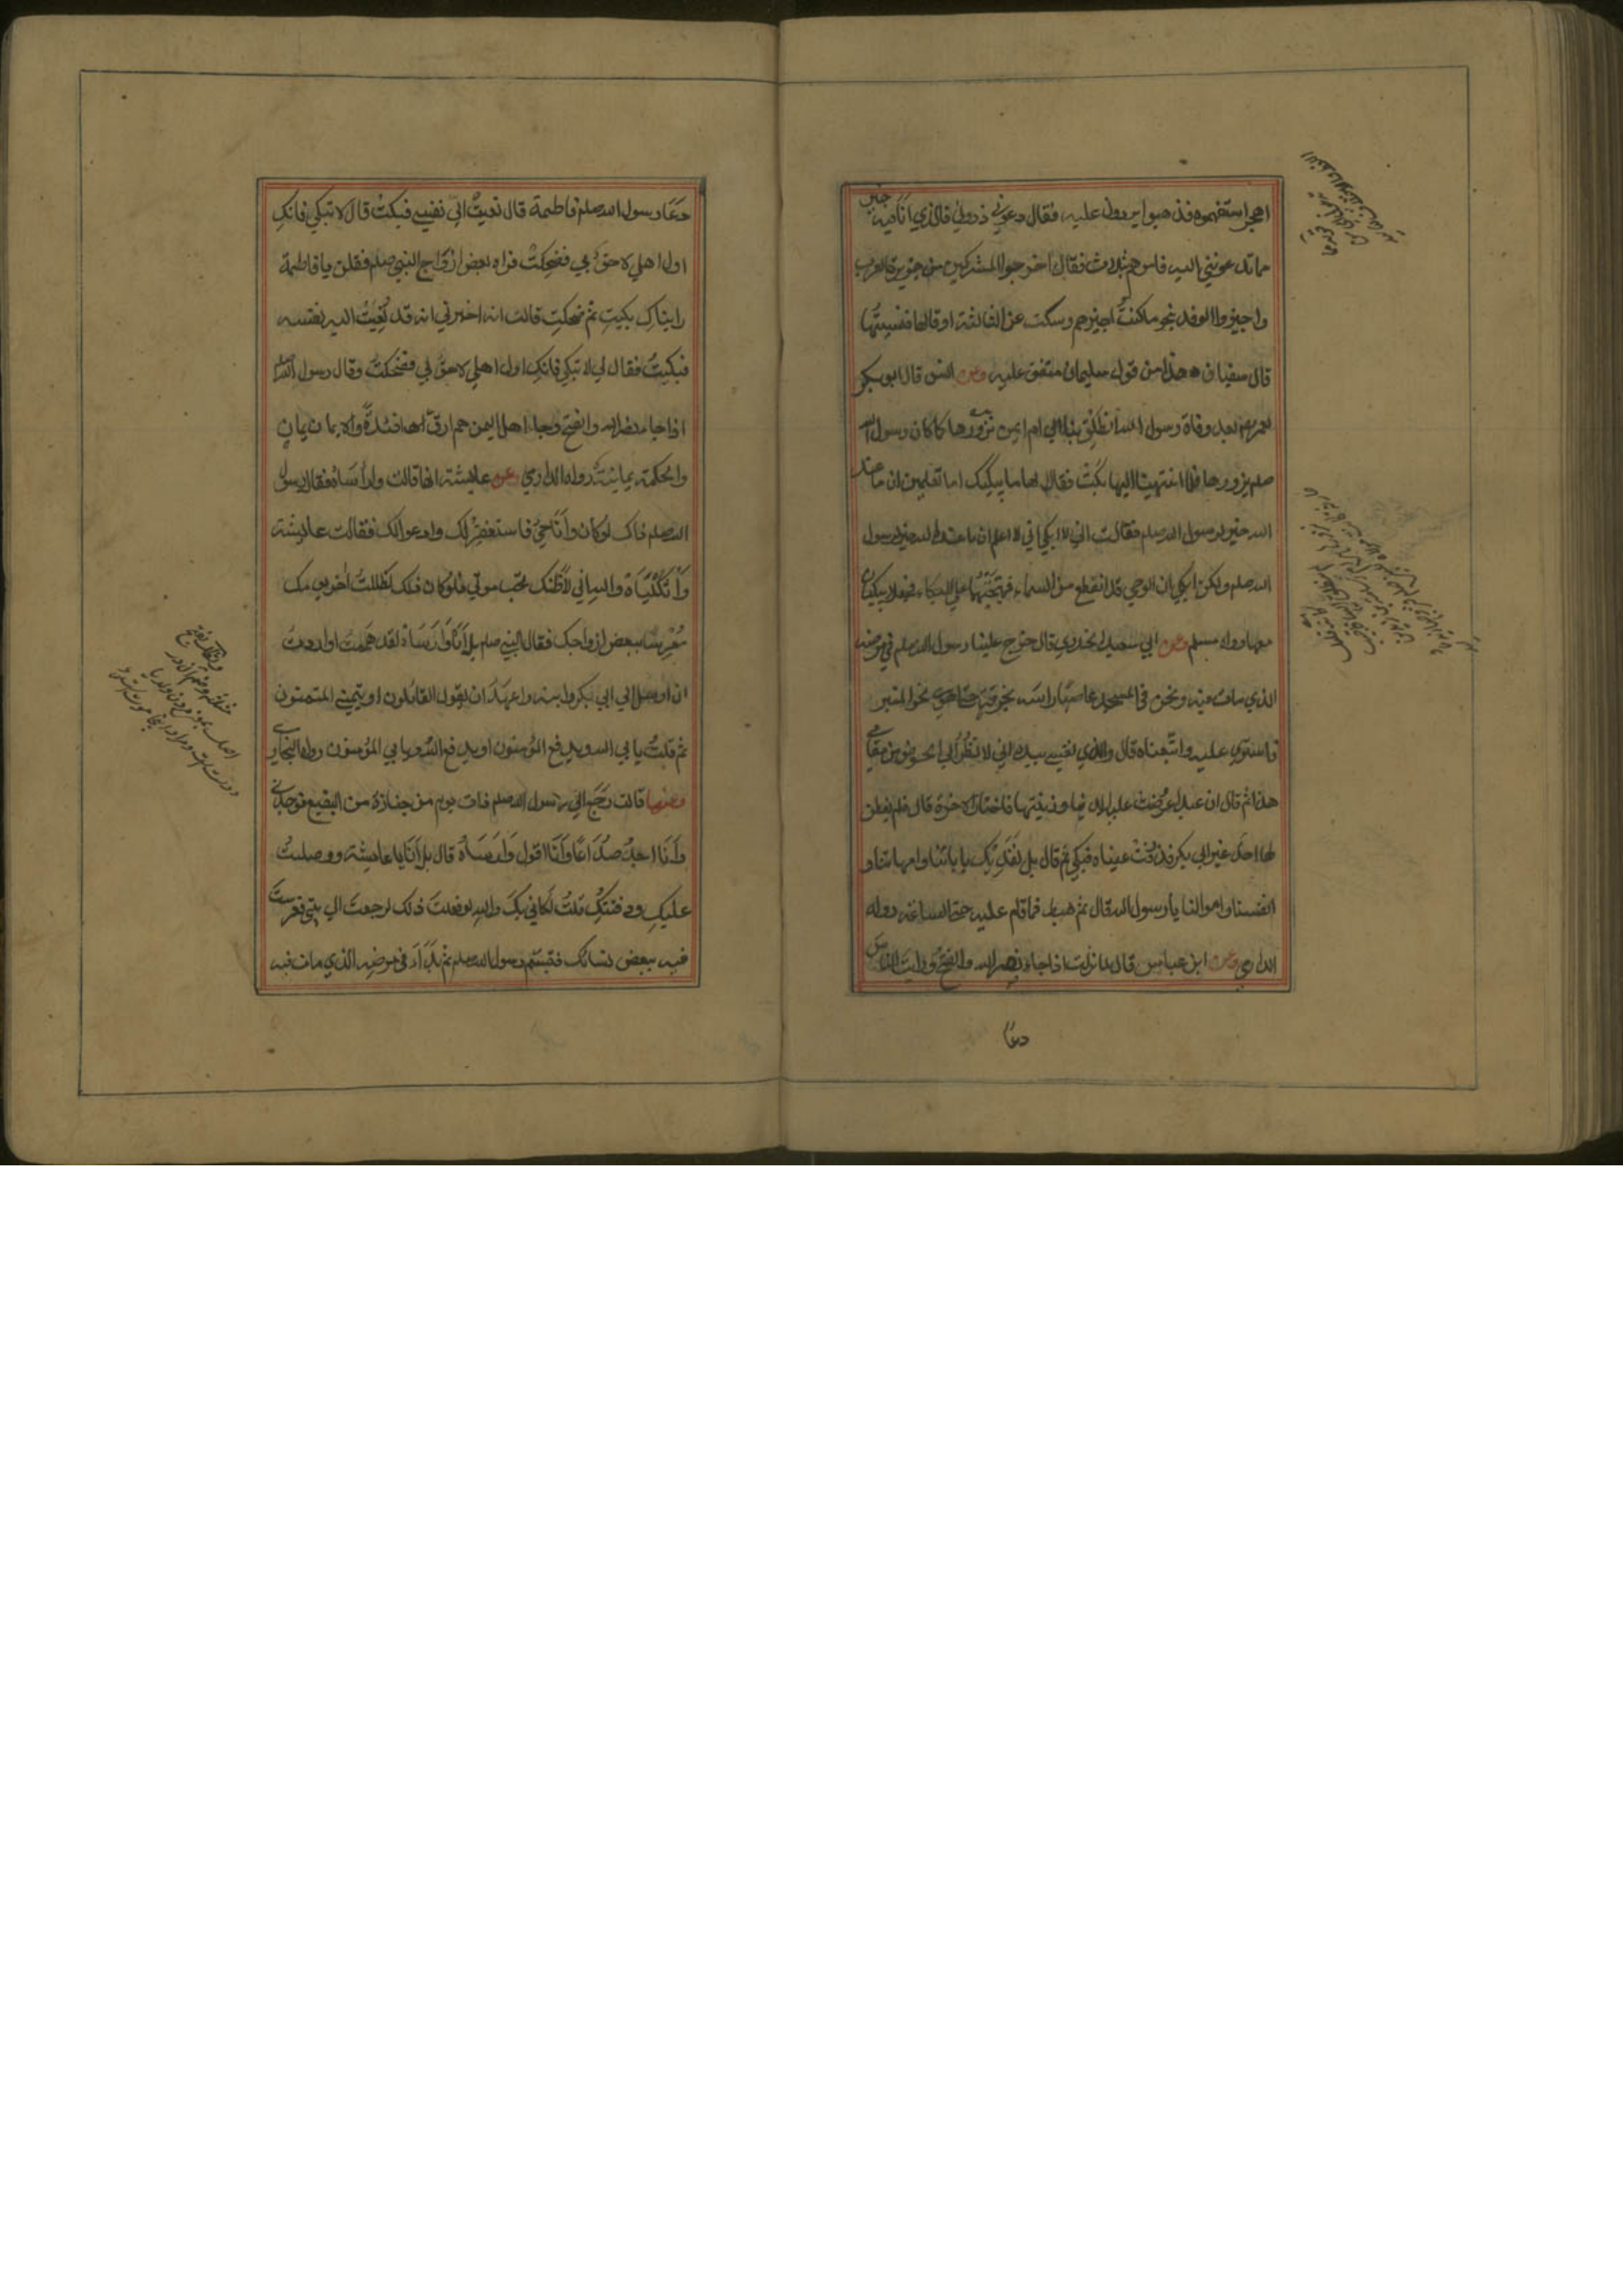 اهجر استفهموه فذهبوا يردون عليه فقال دعوني ذروني فالذي انا فيه خير
مما تدعونني اليه فامرهم بثلاث فقال اخرجوا المشركين من جزيرة العرب
واجيزوا الوفد بنحو ما كنت اجيزهم وسكت عن الثالثة او قالها فنسيتها
قال سفيان هذا من قول سليمان متفق عليه وعن انس قال ابو بكر
لعمر بعد وفاة رسول الله انطلق بنا الى ام ايمن نزورها كما كان رسول الله
صلم يزورها فلما انتهينا اليها بكت فقالا لها ما يبكيك اما تعلمين ان ما عند
الله خير لرسول الله صلم فقالت اني لا ابكي اني لا اعلم ان ما عند الله خير لرسول
الله صلم ولكن ابكي ان الوحي قد انقطع من السماء فهيجتهما على البكاء فجعلا يبكيان
معها رواه مسلم وعن ابي سعيد الخدري قال خرج علينا رسول الله صلم في مرضه
الذي مات فيه ونحن في المسجد عاصبا راسه بخرقة حتى اهوى نحو المنبر
فاستوى عليه واتبعناه قال والذي نفسي بيده اني لانظر الى الحوض من مقامي
هذا ثم قال ان عبدا عرضت عليه الدنيا وزينتها فاختار الاخرة قال فلم يفطن
لها احد غير ابي بكر فذرفت عيناه فبكى ثم قال بل نفديك بابائنا وامهاتنا و
انفسنا واموالنا يا رسول الله قال ثم هبط فما قام عليه حتى الساعة رواه
الدارمي وعن ابن عباس قال لما نزلت اذا جاء نصر الله والفتح ورايت الناس
دعا
دعا رسول الله صلم فاطمة قال نعيت الي نفسي فبكت قال لا تبكي فانك
اول اهلي لاحق بي فضحكت فراه بعض ازواج النبي صلم فقلن يا فاطمة
رايناك بكيت ثم ضحكت قالت انه اخبرني انه قد نعيت اليه نفسه
فبكيت فقال لي لا تبكي فانك اول اهلي لاحق لي فضحكت وقال رسول الله صلم
اذا جاء نصر الله والفتح وجاء اهل اليمن هم ارق افئدة والايمان يمان
والحكمة يمانية رواه الدارمي وعن عايشة انها قالت وا راساه فقال رسول
الله صلم ذاك لو كان وانا حي فاستغفر لك وادعو لك فقالت عايشة
واثكلياه والله اني لاظنك تحب موتي فلو كان ذلك لظللت اخر يومك
معرسا ببعض ازواجك فقال النبي صلم بل انا وا راساه لقد هممت او اردت
ان ارسل الى ابي بكر وابنه واعهد ان يقول القايلون او يتمنى المتمنون
ثم قلت يابى الله ويدفع المؤمنون او يدفع الله ويابى المؤمنون رواه البخاري
وعنها قالت رجع الي رسول الله صلم ذات يوم من جنازة من البقيع فوجدني
وانا اجد صداعا وانا اقول وا راساه قال بل انا يا عايشة وصليت
عليك ودفنتك قلت لكاني بك والله لو فعلت ذلك لرجعت الى بيتي فعرست
فيه ببعض نسائك فتبسم رسول الله صلم ثم بدا في مرضه الذي مات فيه